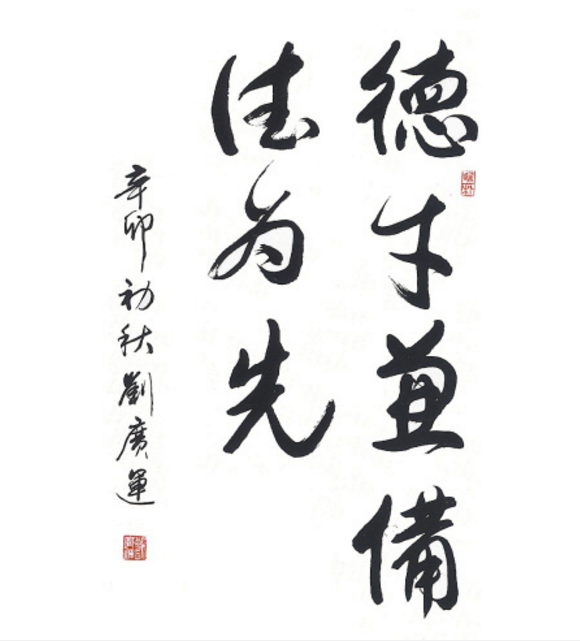 德才兼備
德为先
辛卯初秋劉廣運